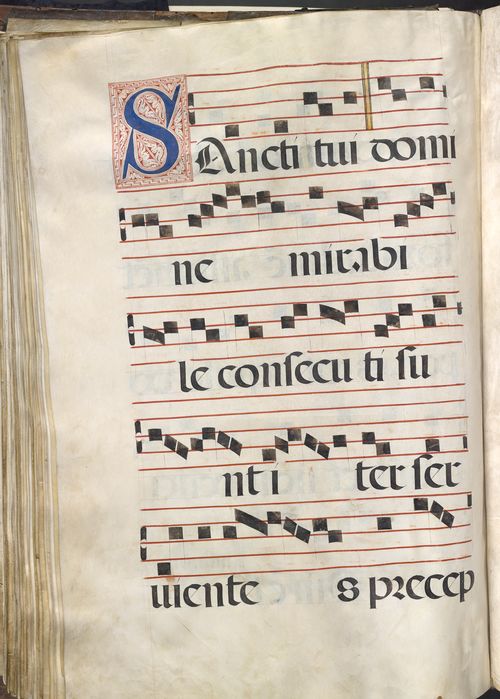 SAncti tui domi
ne mirabi
le consecu ti su
nt i ter ser
uiente s precep